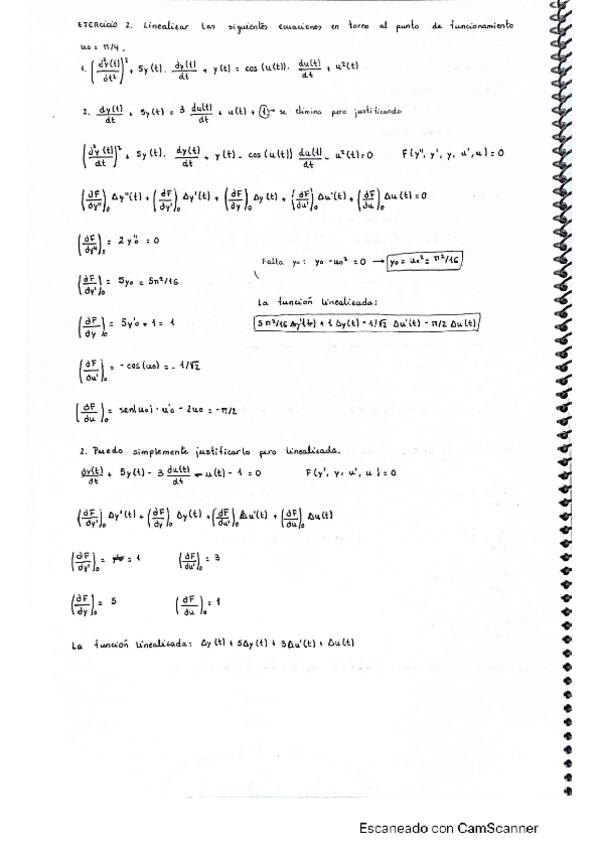 EJERCICIO 2. Linealizar las siguientes ecuaciones en torno al punto de funcionamiento
u₀ = π/4.
1. (d²y(t)/dt²)² + 5y(t) · dy(t)/dt + y(t) = cos(u(t)) · du(t)/dt + u²(t)
2. dy(t)/dt + 5y(t) = 3 du(t)/dt + u(t) + 1 → se elimina pero justificando
(d²y(t)/dt)² + 5y(t) · dy(t)/dt + y(t) - cos(u(t)) du(t)/dt - u²(t) = 0 F(y'', y', y, u', u) = 0
(∂F/∂y'')₀ Δy''(t) + (∂F/∂y')₀ Δy'(t) + (∂F/∂y)₀ Δy(t) + (∂F/∂u')₀ Δu'(t) + (∂F/∂u)₀ Δu(t) = 0
(∂F/∂y'')₀ = 2y''₀ = 0
Falta y₀: y₀ - u₀² = 0 → y₀ = u₀² = π²/16
(∂F/∂y')₀ = 5y₀ = 5π²/16
La función linealizada:
(∂F/∂y)₀ = 5y'₀ + 1 = 1
5π²/16 Δy'(t) + 1 Δy(t) - 1/√2 Δu'(t) - π/2 Δu(t)
(∂F/∂u')₀ = -cos(u₀) = -1/√2
(∂F/∂u)₀ = sen(u₀) · u'₀ - 2u₀ = -π/2
2. Puedo simplemente justificarlo pero linealizada.
dy(t)/dt + 5y(t) - 3 du(t)/dt - u(t) - 1 = 0 F(y', y, u', u) = 0
(∂F/∂y')₀ Δy'(t) + (∂F/∂y)₀ Δy(t) + (∂F/∂u')₀ Δu'(t) + (∂F/∂u)₀ Δu(t)
(∂F/∂y')₀ = 1 (∂F/∂u')₀ = 3
(∂F/∂y)₀ = 5 (∂F/∂u)₀ = 1
La función linealizada: Δy(t) + 5Δy(t) + 3Δu'(t) + Δu(t)
Escaneado con CamScanner